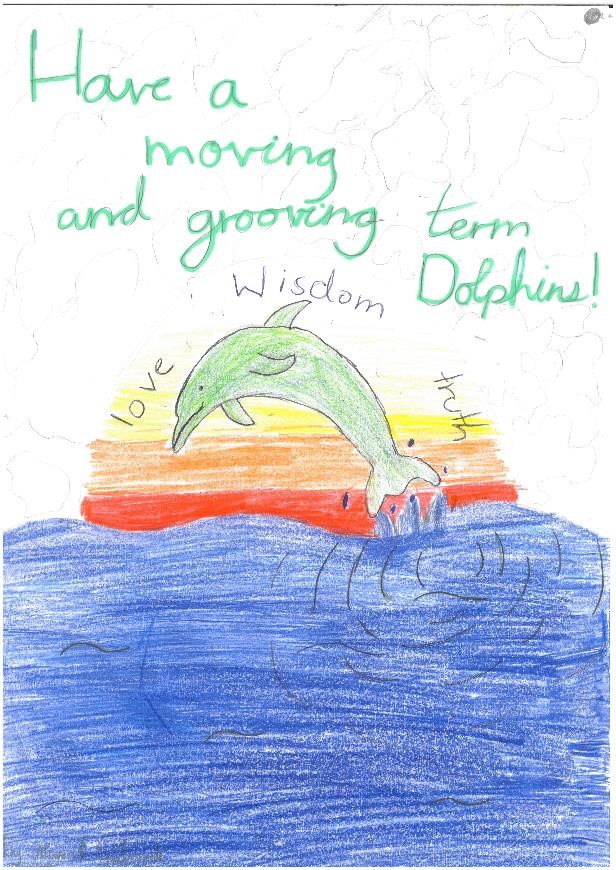 Have a
moving
and grooving term
Dolphins!
Wisdom
love
truth
By